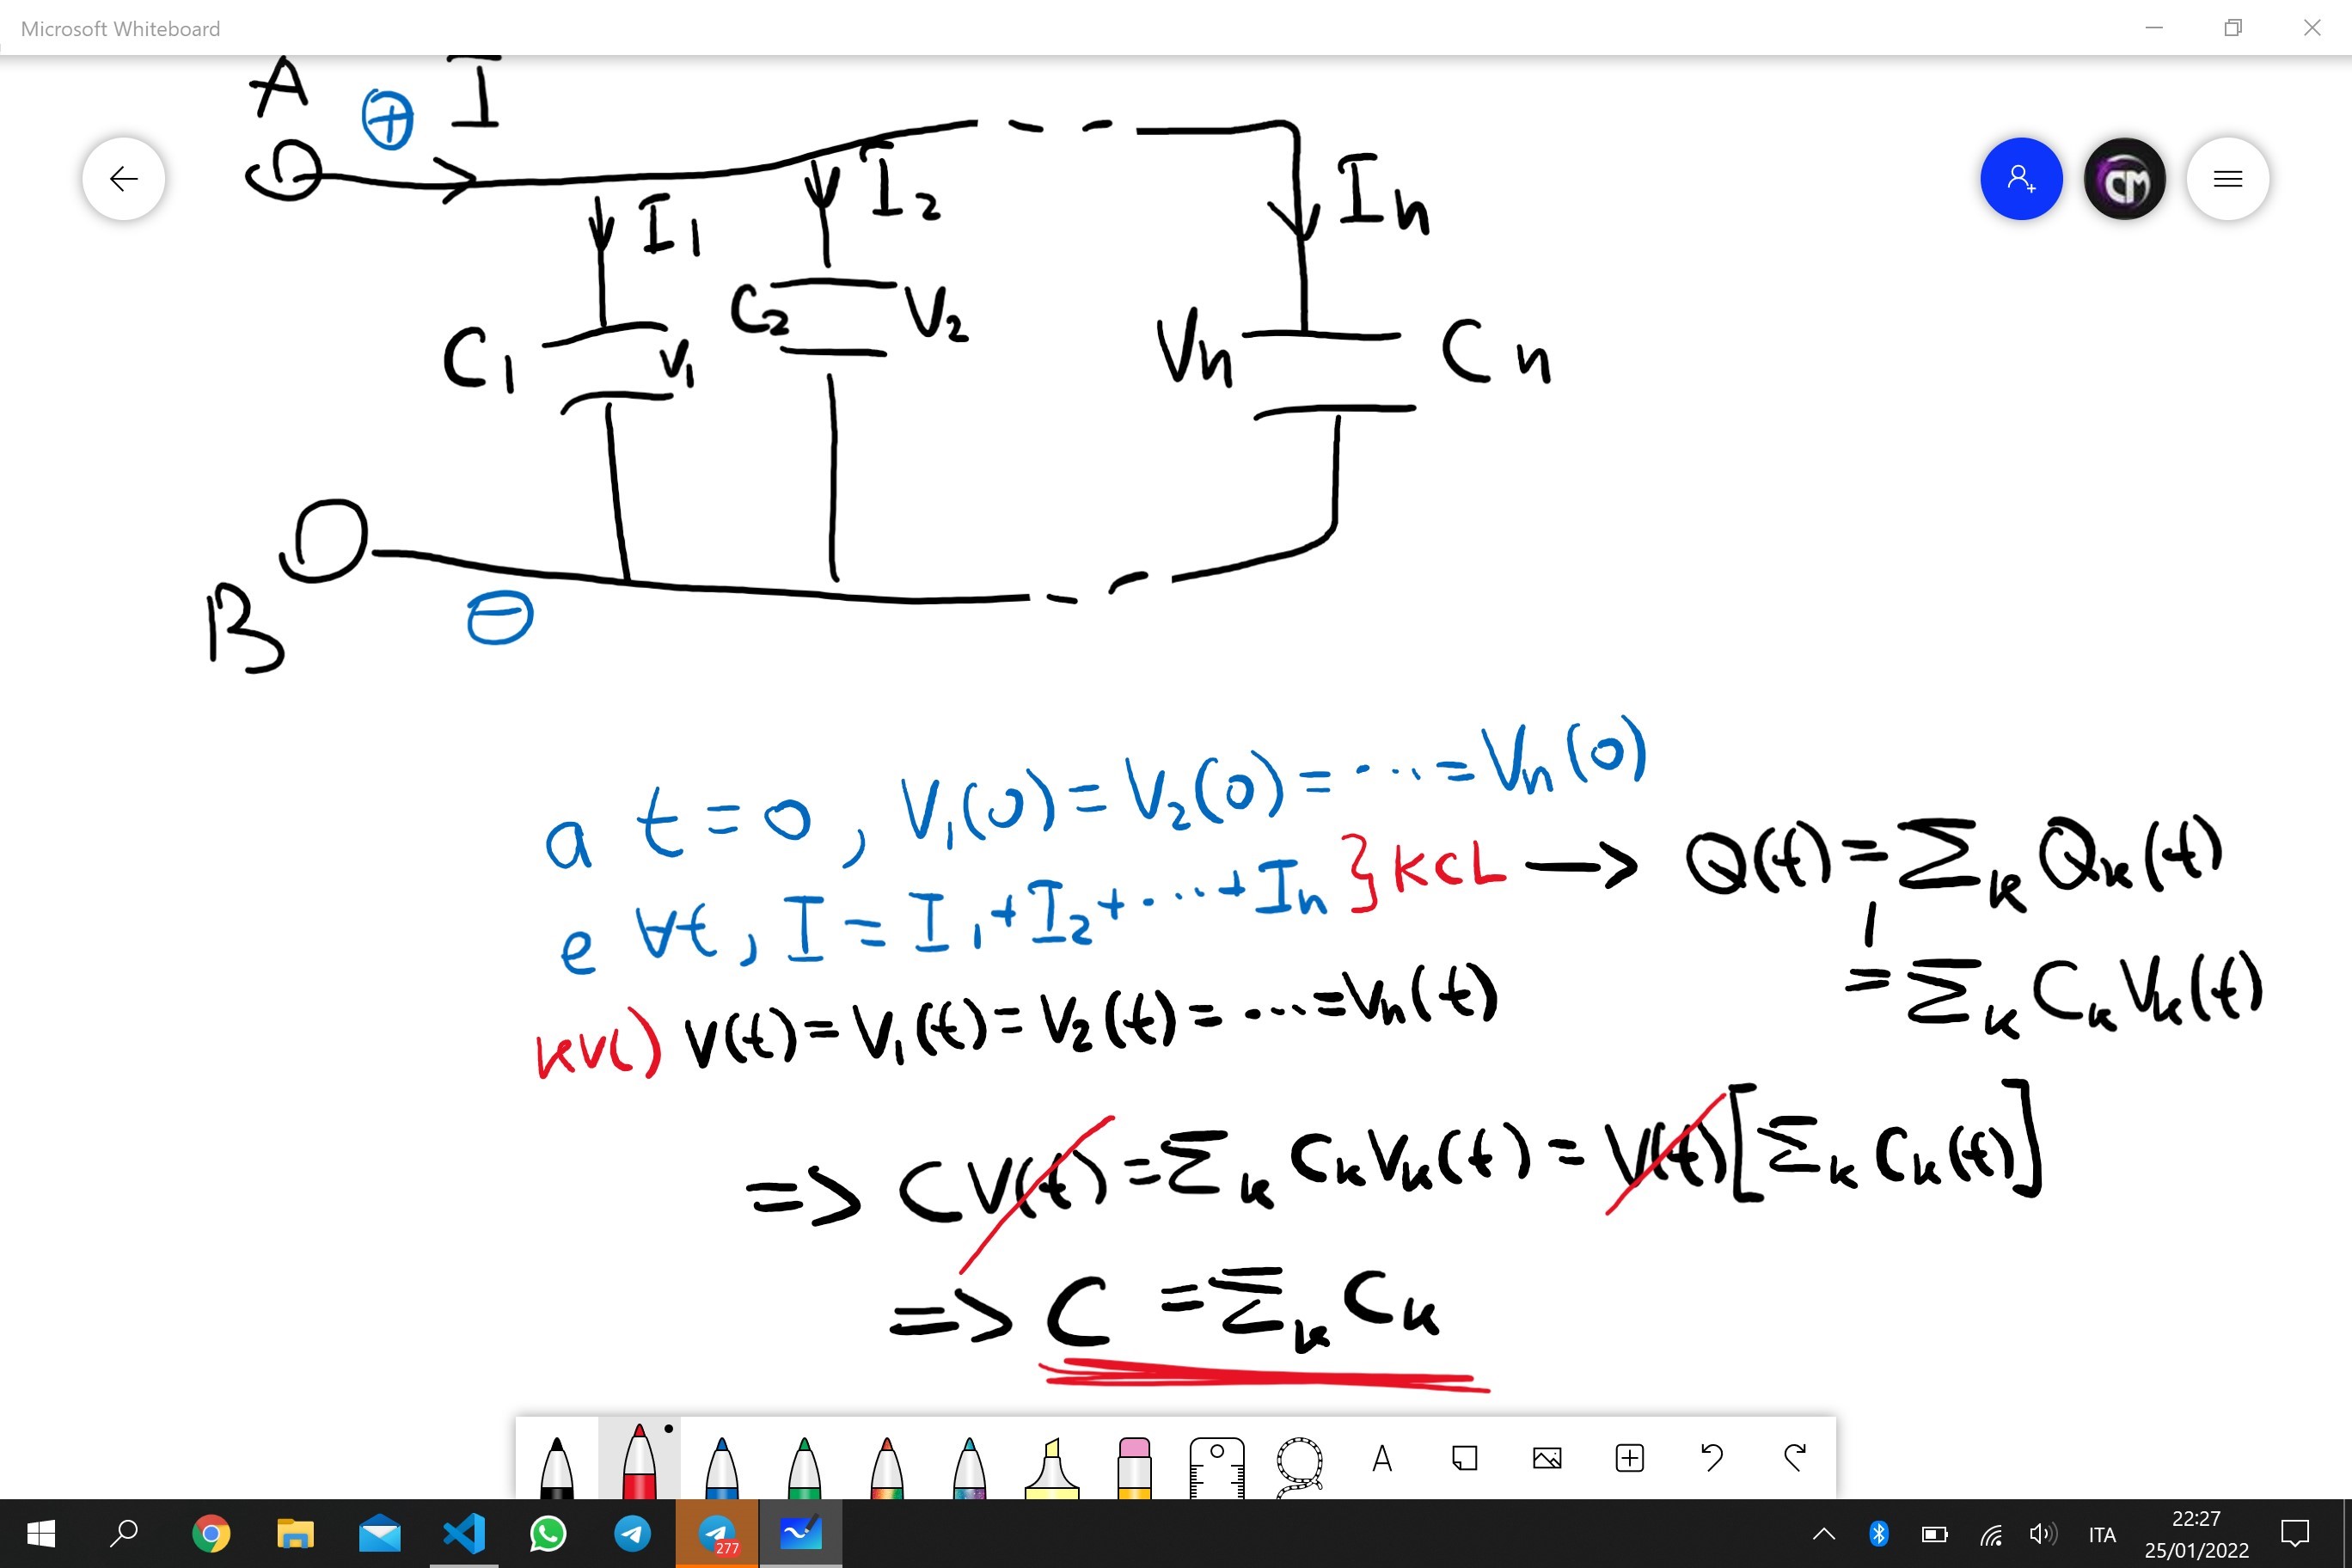 Microsoft Whiteboard
A ⊕ I
I₁ I₂ Iₙ
CM
C₁ V₁ C₂ V₂ Vₙ Cₙ
B ⊖
a t = 0 , V₁(0) = V₂(0) = ... = Vₙ(0)
e ∀t , I = I₁ + I₂ + ... + Iₙ } KCL → Q(t) = Σₖ Qₖ(t)
= Σₖ Cₖ Vₖ(t)
KVL) V(t) = V₁(t) = V₂(t) = ... = Vₙ(t)
=> C V(t) = Σₖ Cₖ Vₖ(t) = V(t) [Σₖ Cₖ(t)]
=> C = Σₖ Cₖ
A
277
ITA
22:27
25/01/2022